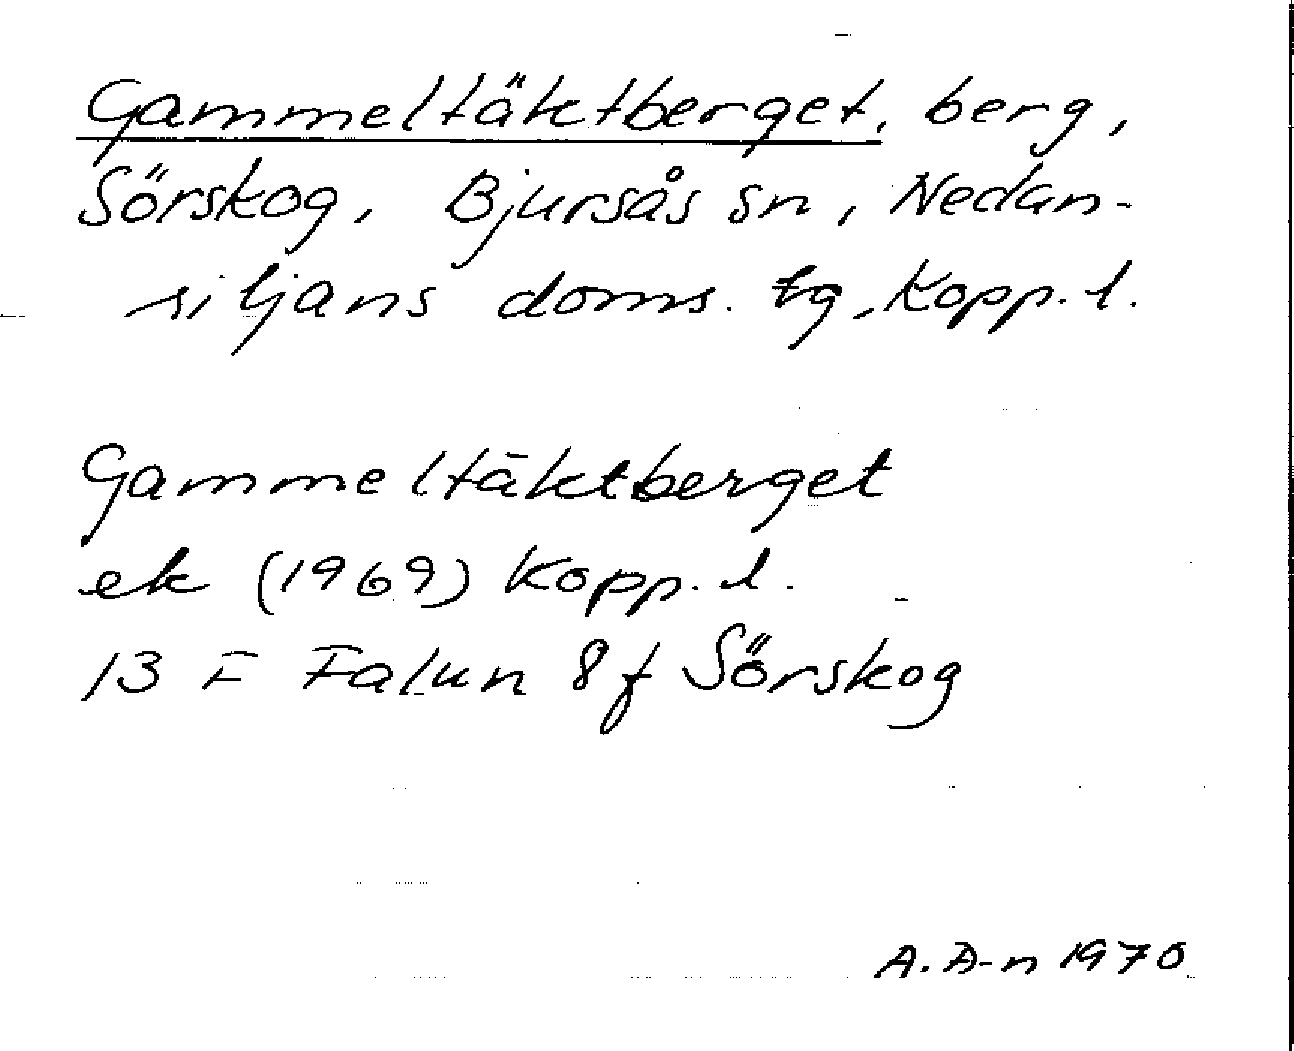 Gammeltäktberget, berg,
Sörskog, Bjursås sn, Nedan-
siljans doms. tg, Kopp. l.
Gammeltäktberget
ek (1969) Kopp. l.
13 F Falun 8f Sörskog
A. A-n 1970